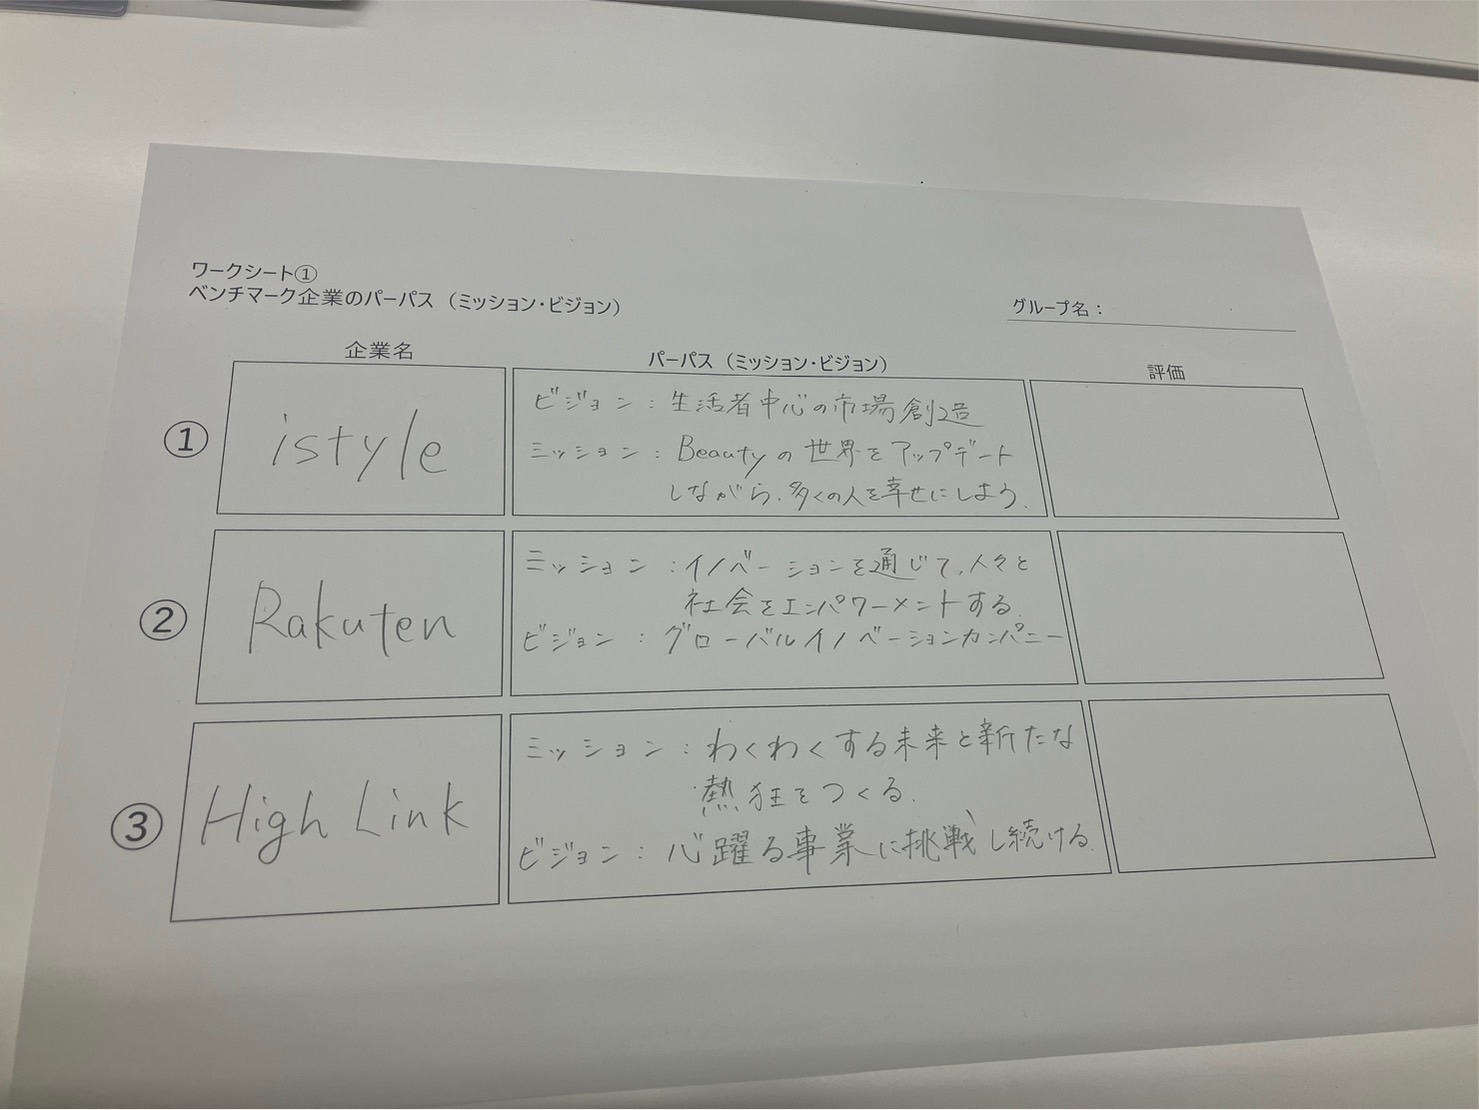 ワークシート①
ベンチマーク企業のパーパス（ミッション・ビジョン）
グループ名：
企業名
パーパス（ミッション・ビジョン）
評価
①
istyle
ビジョン：生活者中心の市場創造
ミッション：Beautyの世界をアップデート
しながら、多くの人を幸せにしよう。
②
Rakuten
ミッション：イノベーションを通じて、人々と
社会をエンパワーメントする。
ビジョン：グローバルイノベーションカンパニー
③
High Link
ミッション：わくわくする未来と新たな
熱狂をつくる。
ビジョン：心躍る事業に挑戦し続ける。